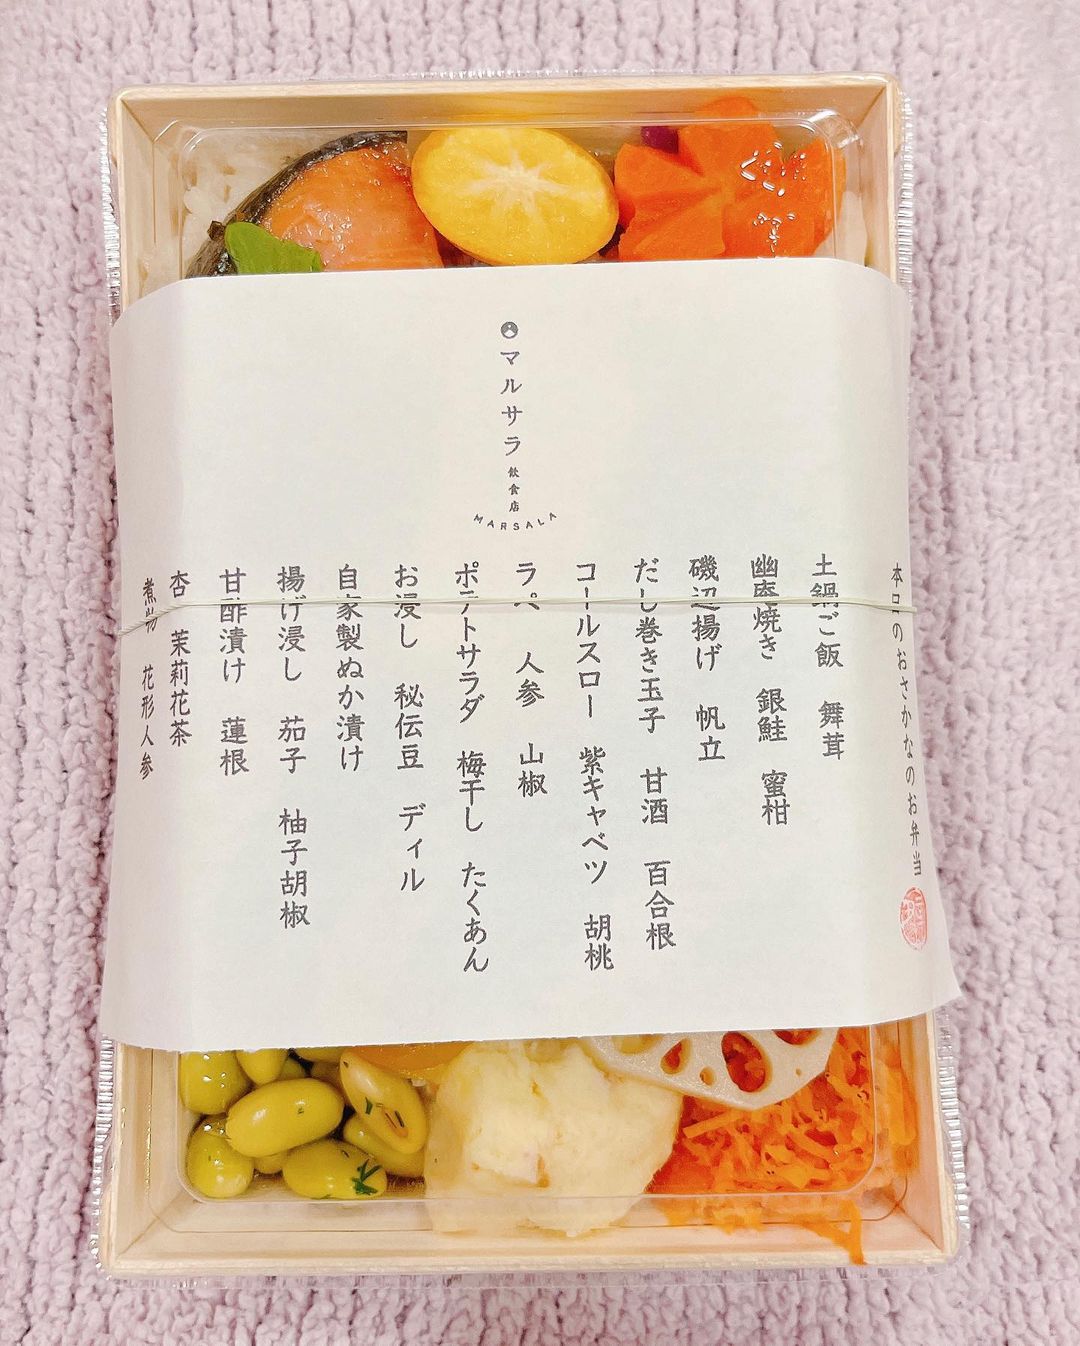 マルサラ
飲食店
MARSALA
本日のおさかなのお弁当
土鍋ご飯　舞茸
幽庵焼き　銀鮭　蜜柑
磯辺揚げ　帆立
だし巻き玉子　甘酒　百合根
コールスロー　紫キャベツ　胡桃
ラペ　人参　山椒
ポテトサラダ　梅干し　たくあん
お浸し　秘伝豆　ディル
自家製ぬか漬け
揚げ浸し　茄子　柚子胡椒
甘酢漬け　蓮根
杏　茉莉花茶
煮物　花形人参